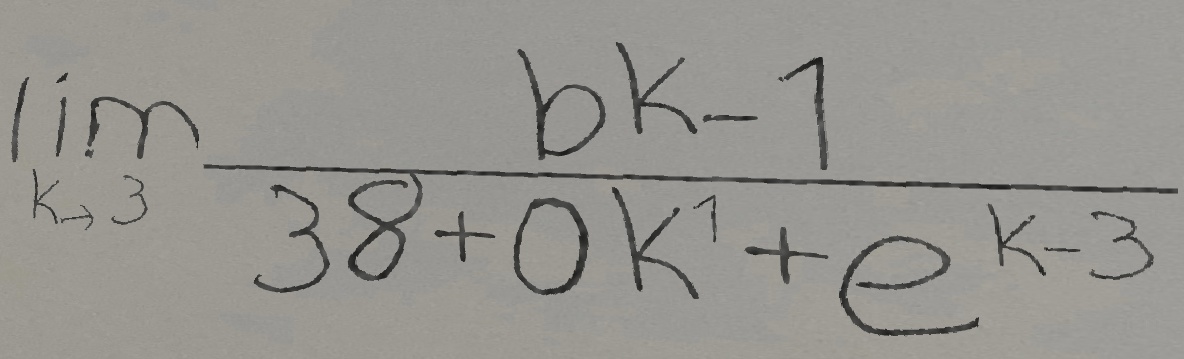 \lim_{k \to 3} \frac{bk-1}{38+0k^1+e^{k-3}}